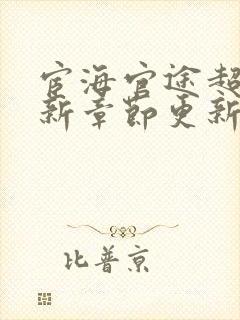 宦海官途超
新章节更新
比普京